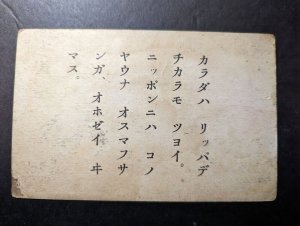 カラダハ リッパデ
チカラモ ツヨイ。
ニッポンニハ コノ
ヤウナ オスマフサ
ンガ、オホゼイ ヰ
マス。